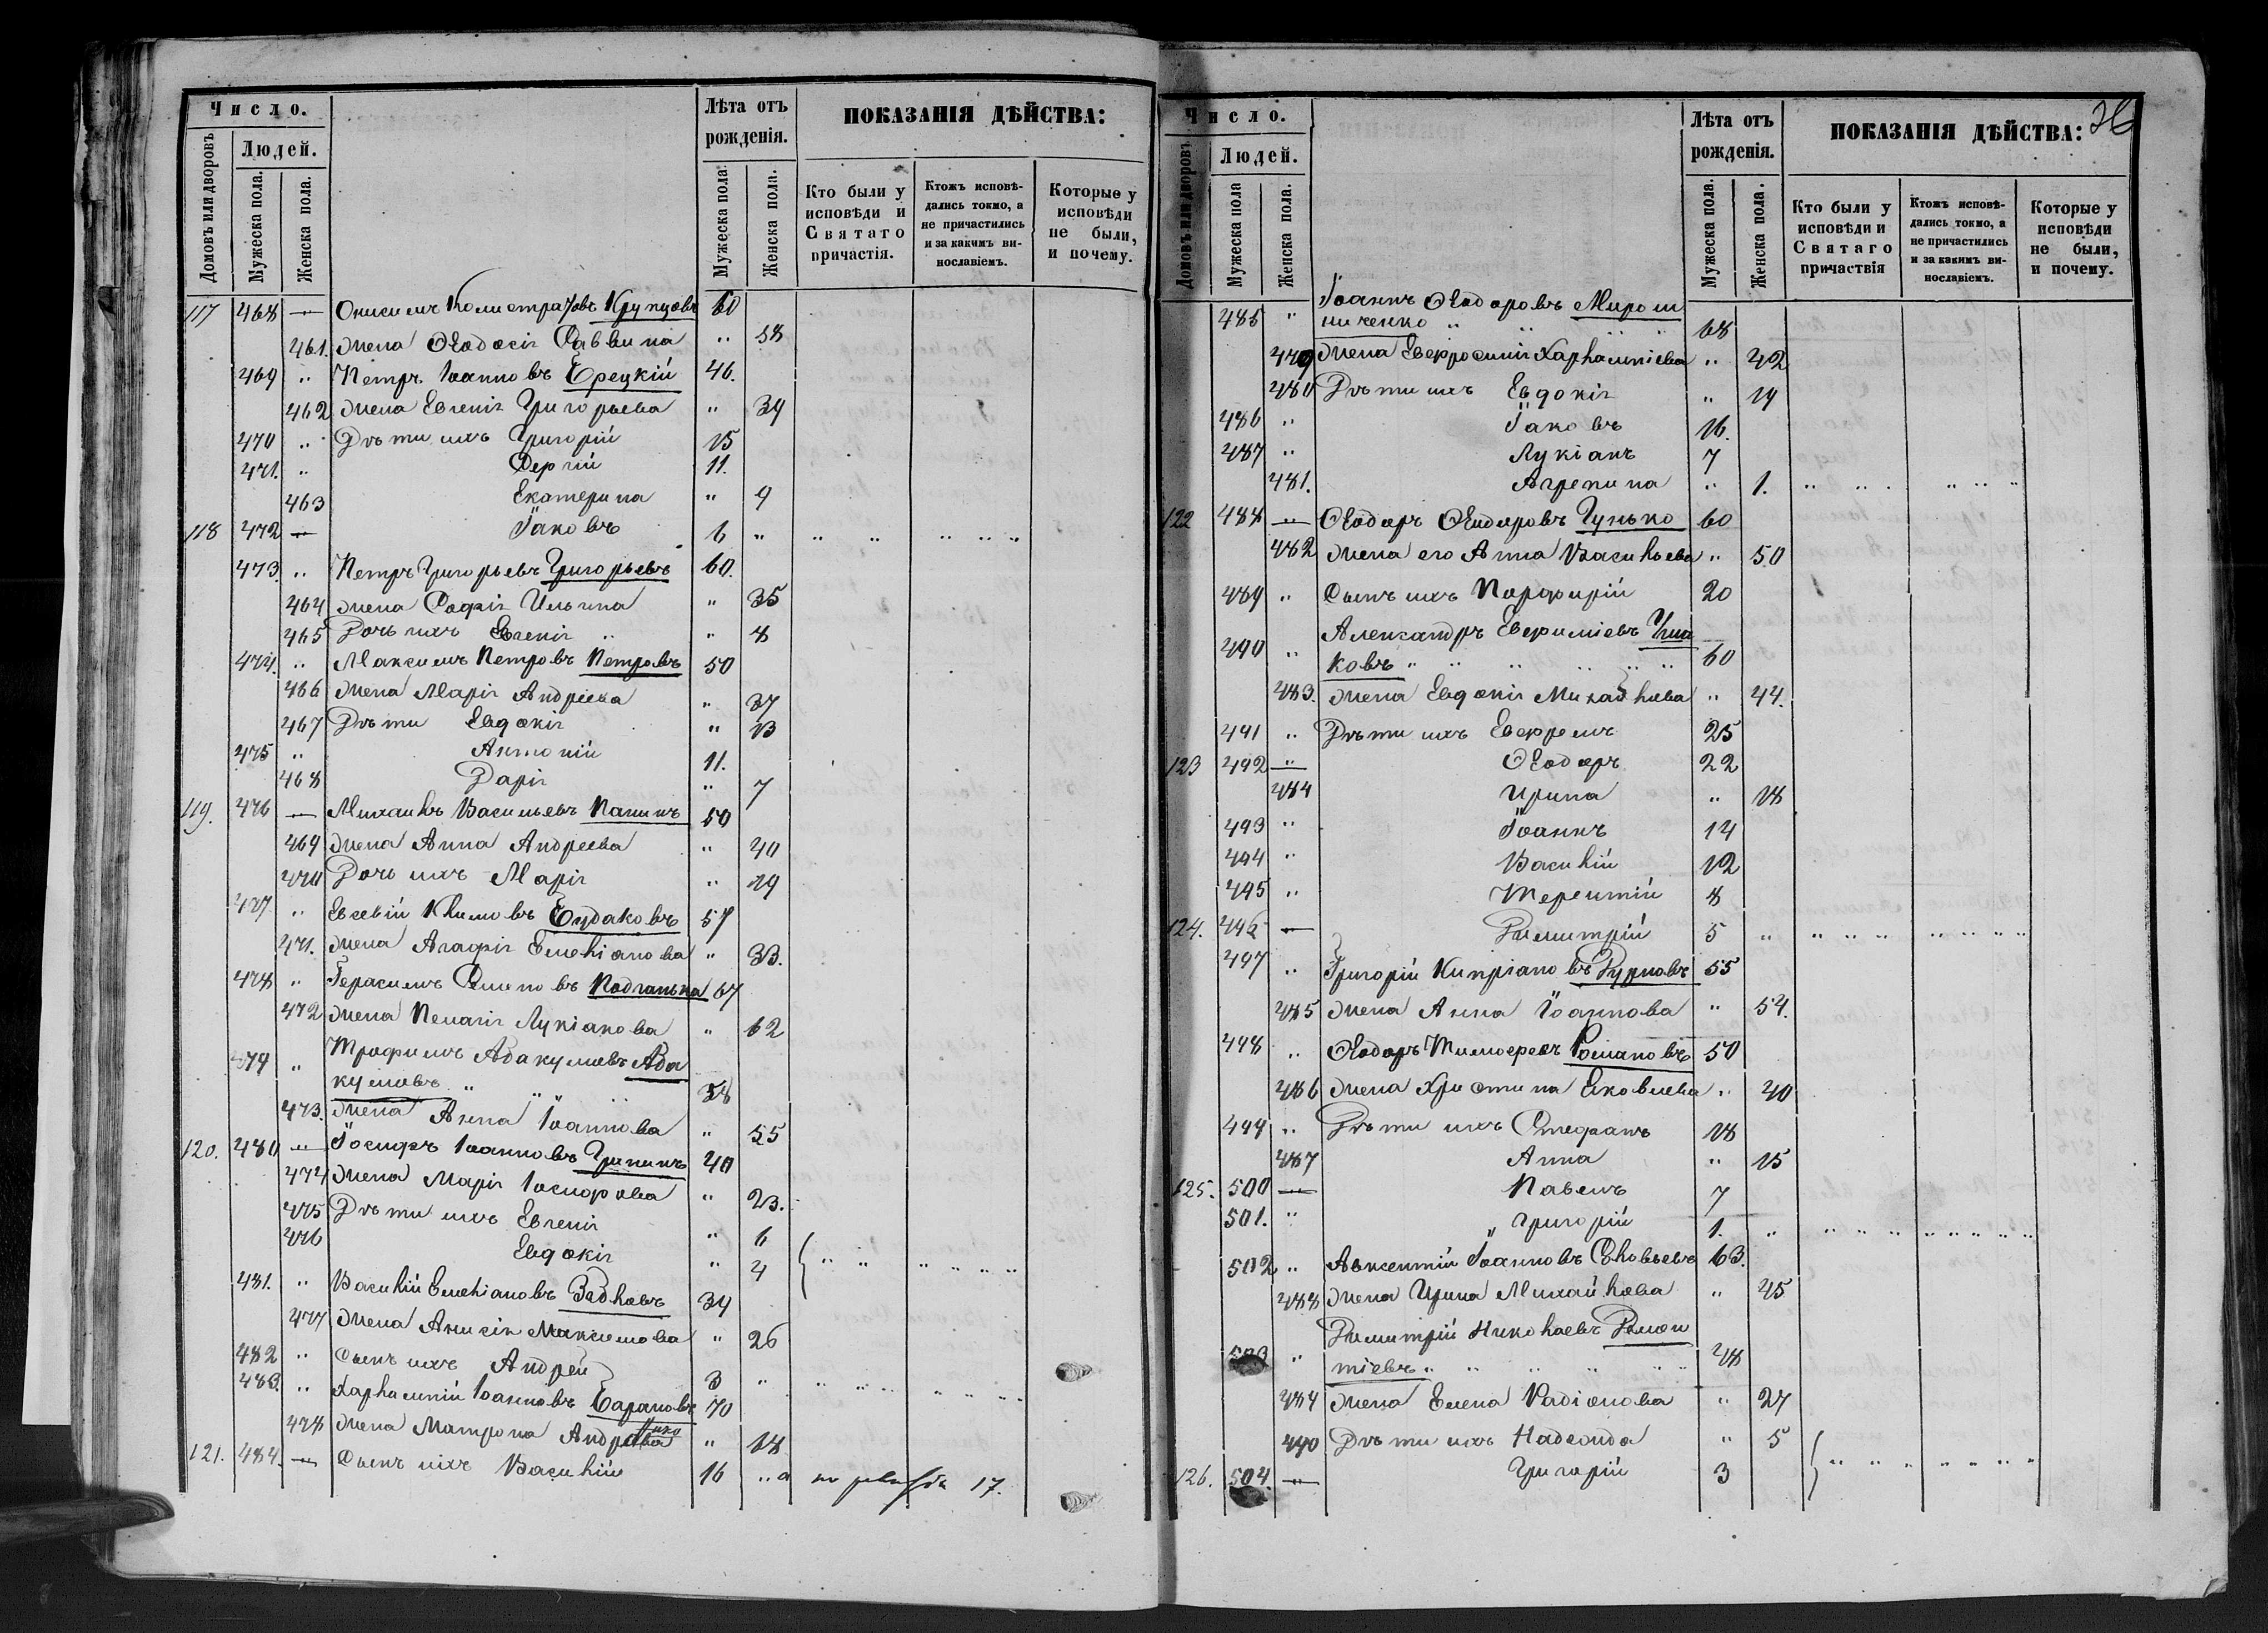 Число.
Лѣта отъ рожденія.
ПОКАЗАНІЯ ДѢЙСТВА:
Домовъ или дворовъ
Людей.
Мужеска пола.
Женска пола.
Мужеска пола.
Женска пола.
Кто были у исповѣди и Святаго причастія.
Ктожъ исповѣдались токмо, а не причастились и за какимъ винославіемъ.
Которые у исповѣди не были, и почему.
117 468 — Онисимъ Калистратовъ Крупцовъ 60
461. жена Ѳеодосія Саввина " 58
469 " Петръ Іоанновъ Ерецкій 46.
462 жена Евгенія Григорьева " 34
470 " Дѣти ихъ Григорій 15
471. " Сергій 11.
463 Екатерина " 9
118 472 — Іаковъ 6 "
473 " Петръ Григорьевъ Григорьевъ 60.
464 жена Софія Ильина " 35
465 Дочь ихъ Евгенія " 8
474. " Максимъ Петровъ Петровъ 50
466 жена Марія Андреева " 37
467 Дѣти Евдокія " 13
475 " Антоній 11.
468 Дарія " 7
119. 476 — Михаилъ Васильевъ Папинъ 50
469 жена Анна Андреева " 40
470 Дочь ихъ Марія " 19
477 " Евсевій Климовъ 57
471. жена Агафія Емеліанова " 33.
478 " Герасимъ Семеновъ 67
472 жена Пелагія Лукіанова " 62
479 " Трофимъ Абакумовъ Аба
кумовъ " " " 58
473. жена Анна Іоаннова " 55
120. 480 — Іосифъ Іоанновъ 40
474 жена Марія Іосифова " 23.
475 Дѣти ихъ Евгенія " 6
476 Евдокія " 4
481. " Василій Емеліановъ 34
477 жена Анисія Максимова " 26
482 " Сынъ ихъ Андрей 3 "
483. " Харлампій Іоанновъ Барановъ 70
478 жена Матрона Андреева " 18
121. 484. — Сынъ ихъ Василій 16 " 17.
26
Число.
Лѣта отъ рожденія.
ПОКАЗАНІЯ ДѢЙСТВА:
Домовъ или дворовъ.
Людей.
Мужеска пола
Женска пола.
Мужеска пола.
Женска пола.
Кто были у исповѣди и Святаго причаствія
Ктожъ исповѣдались токмо, а не причастились и за какимъ винославіемъ.
Которые у исповѣди не были, и почему.
485 " Іоаннъ Ѳеодоровъ Мирош
ниченко " " " " 68
479 жена Евфросинія Харлампіева " 42
480 Дѣти ихъ Евдокія " 19
486 " Іаковъ 16.
487 " Лукіанъ 7
481. Агрепина " 1.
122 488 — Ѳеодоръ Ѳеодоровъ Гунько 60
482 жена его Анна Васильева " 50
489 " Сынъ ихъ Порфирій 20
490 " Александръ Евфиміевъ
ковъ " " " " " 60
483. жена Евдокія Михайлова " 44.
491 " Дѣти ихъ Евфремъ 25
123 492 " Ѳеодоръ 22
484 Ирина " 18
493 " Іоаннъ 14
494 " Василій 12
495 " Терентій 8
124. 496 — Димитрій 5 "
497 " Григорій Кипріановъ 55
485 жена Анна Іоаннова " 54.
498 " Ѳеодоръ Тимофеевъ Романовъ 50
486 жена Христина Яковлева " 40
499 " Дѣти ихъ Стефанъ 18
487 Анна " 15
125. 500 — Павелъ 7
501. " Григорій 1. "
502 " Авксентій Іоанновъ 63.
488 жена Ирина Михайлова " 45
503 " Димитрій Николаевъ Демен
тіевъ " " " " " 28
489 жена Елена Радіонова " 27
490 Дѣти ихъ Надежда " 5
126. 504. — Григорій 3